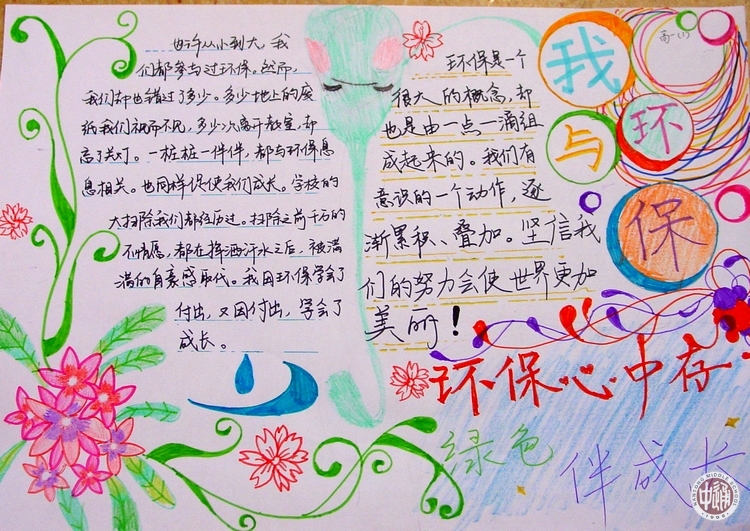 好许从小到大，我
们都参与过环保。然而，
我们却也错过了多少。多少地上的废
纸我们视而不见，多少次离开教室，却
忘了关灯。一桩桩一件件，都与环保息
息相关。也同样促使我们成长。学校的
大扫除我们都经历过。扫除之前千百的
不情愿，都在挥洒汗水之后，被满
满的自豪感取代。我因环保学会了
付出，又因付出，学会了
成长。
环保是一个
很大的概念，却
也是由一点一滴组
成起来的。我们有
意识的一个动作，逐
渐累积、叠加。坚信我
们的努力会使世界更加
美丽！
高一(1)
我
与
环
保
环保心中存
绿色
伴成长